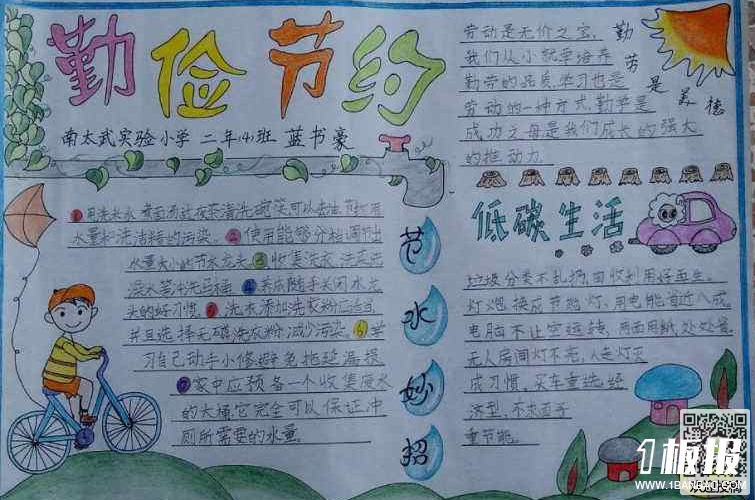 勤俭节约
南太武实验小学 二年(4)班 蓝书豪
劳动是无价之宝,
我们从小就要培养
勤劳的品质,学习也是
劳动的一种方式,勤劳是
成功之母是我们成长的强大
的推动力.
勤劳是美德
①用洗米水、煮面汤过夜茶清洗碗筷可以去油,节约用
水量和洗洁精的污染。②使用能够分档调节出
水量大小的节水龙头③收集洗衣、洗菜
澡水等冲洗马桶④关成随手关闭水龙
头的好习惯。⑤洗衣添加洗衣粉应适当
并且选择无磷洗衣粉,减少污染。⑥学
习自己动手小修避免拖延漏损
⑦家中应预备一个收集废水
的大桶它完全可以保证冲
厕所需要的水量.
节水妙招
低碳生活
垃圾分类不乱扔,回收利用好再生。
灯泡换成节能灯,用电能省近八成。
电脑不让空运转,两面用纸处处省.
无人房间灯不亮,人走灯灭
成习惯,买车重选经
济型,不求面子
重节能。
1板报
WWW.1BANBAO.COM